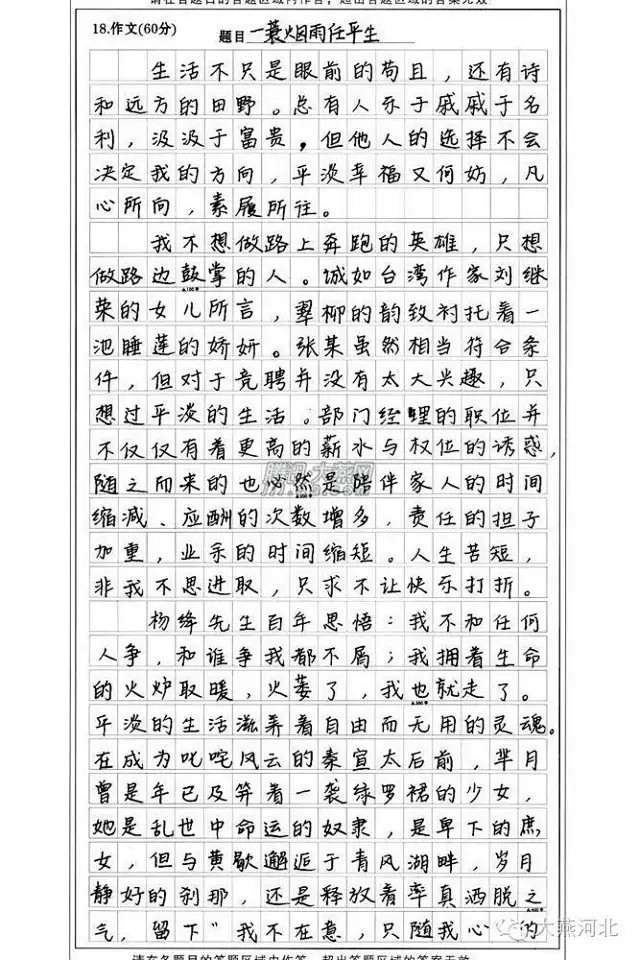 请在各题目的答题区域内作答，超出答题区域的答案无效
18.作文(60分)
题目 一蓑烟雨任平生
生活不只是眼前的苟且，还有诗
和远方的田野。总有人乐于戚戚于名
利，汲汲于富贵，但他人的选择不会
决定我的方向，平淡幸福又何妨，凡
心所向，素履所往。
我不想做路上奔跑的英雄，只想
做路边鼓掌的人。诚如台湾作家刘继
荣的女儿所言，翠柳的韵致衬托着一
池睡莲的娇妍。张某虽然相当符合条
件，但对于竞聘并没有太大兴趣，只
想过平淡的生活。部门经理的职位并
不仅仅有着更高的薪水与权位的诱惑，
随之而来的也必然是陪伴家人的时间
缩减、应酬的次数增多，责任的担子
加重，业余的时间缩短。人生苦短，
非我不思进取，只求不让快乐打折。
杨绛先生百年思悟：我不和任何
人争，和谁争我都不屑；我拥着生命
的火炉取暖，火萎了，我也就走了。
平淡的生活滋养着自由而无用的灵魂。
在成为叱咤风云的秦宣太后前，芈月
曾是年已及笄着一袭绿罗裙的少女，
她是乱世中命运的奴隶，是卑下的庶
女，但与黄歇邂逅于青风湖畔，岁月
静好的刹那，还是释放着率真洒脱之
气，留下"我不在意，只随我心的
腾讯·大燕网
大燕河北
请在各题目的答题区域内作答，超出答题区域的答案无效